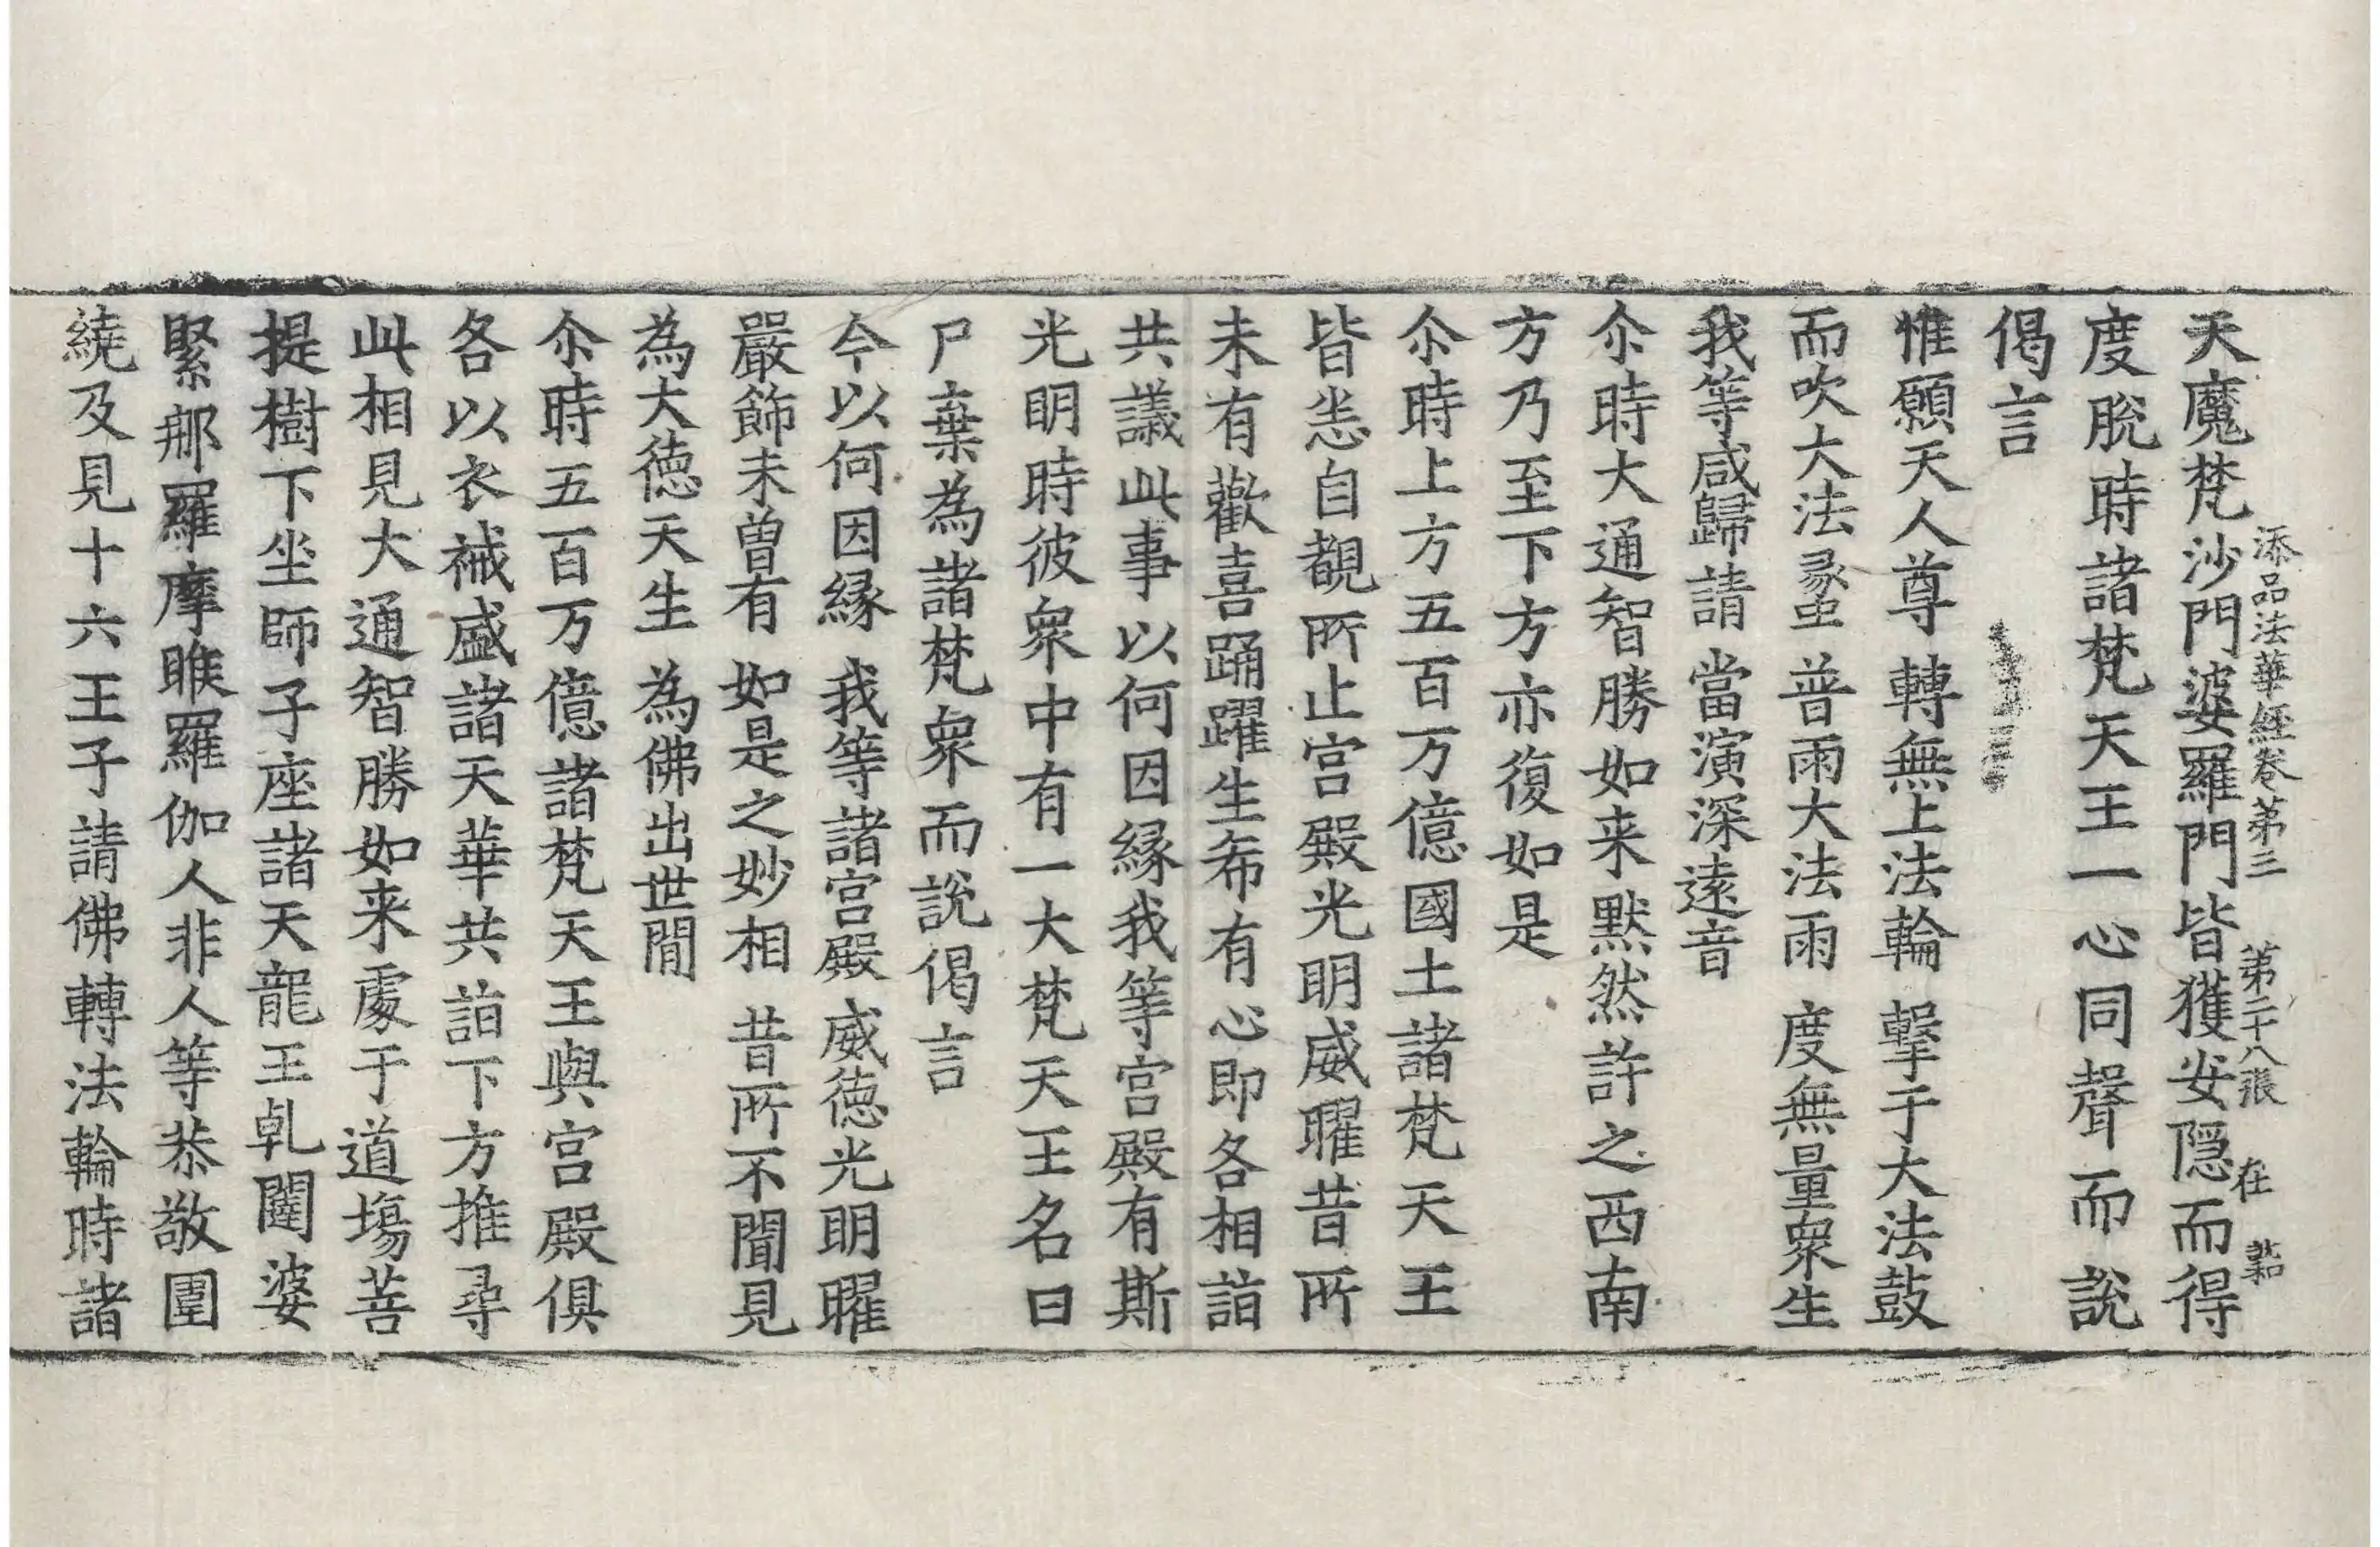 添品法華経卷第三 第二十八張 在
天魔梵沙門婆羅門皆獲安隱而得
度脫時諸梵天王一心同聲而說
偈言
惟願天人尊 轉無上法輪 擊于大法鼓
而吹大法䗍 普雨大法雨 度無量衆生
我等咸歸請 當演深遠音
尒時大通智勝如来黙然許之西南
方乃至下方亦復如是
尒時上方五百万億國土諸梵天王
皆悉自覩所止宫殿光明威曜昔所
未有歡喜踊躍生希有心即各相詣
共議此事以何因緣我等宫殿有斯
光明時彼衆中有一大梵天王名曰
尸棄為諸梵衆而說偈言
今以何因緣 我等諸宫殿 威德光明曜
嚴飾未曾有 如是之妙相 昔所不聞見
為大德天生 為佛出世間
尒時五百万億諸梵天王與宫殿俱
各以衣祴盛諸天華共詣下方推尋
此相見大通智勝如来處于道場菩
提樹下坐師子座諸天龍王乹闥婆
緊那羅摩睺羅伽人非人等恭敬圍
繞及見十六王子請佛轉法輪時諸